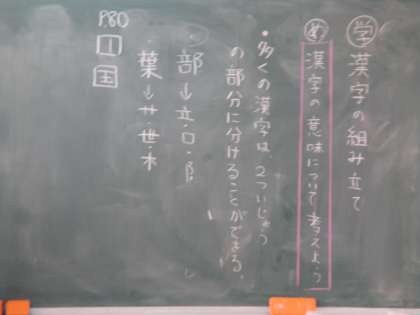 学 漢字の組み立て
め 漢字の意味について考えよう
・多くの漢字は、2ついじょう
の部分に分けることができる。
部→立・口・阝
葉→艹・世・木
P80
1
国